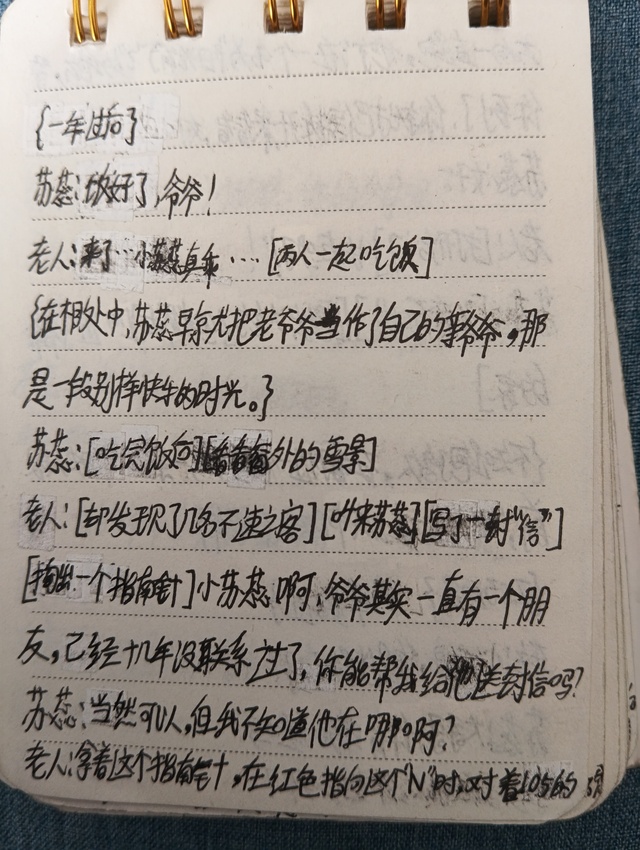 {一年过后}
苏蕊:饭好了,爷爷!
老人:来了…小苏蕊真乖…[两人一起吃饭]
{在相处中,苏蕊早就把老爷爷当作了自己的亲爷爷,那
是一段别样快乐的时光。}
苏蕊:[吃完饭后][看着窗外的雪景]
老人:[却发现了几名不速之客][叫来苏蕊][写了一封“信”]
[掏出一个指南针]小苏蕊啊,爷爷其实一直有一个朋
友,已经十几年没联系过了,你能帮我给他送封信吗?
苏蕊:当然可以,但我不知道他在哪啊?
老人:拿着这个指南针,在红色指向这个“N”时,对着105的